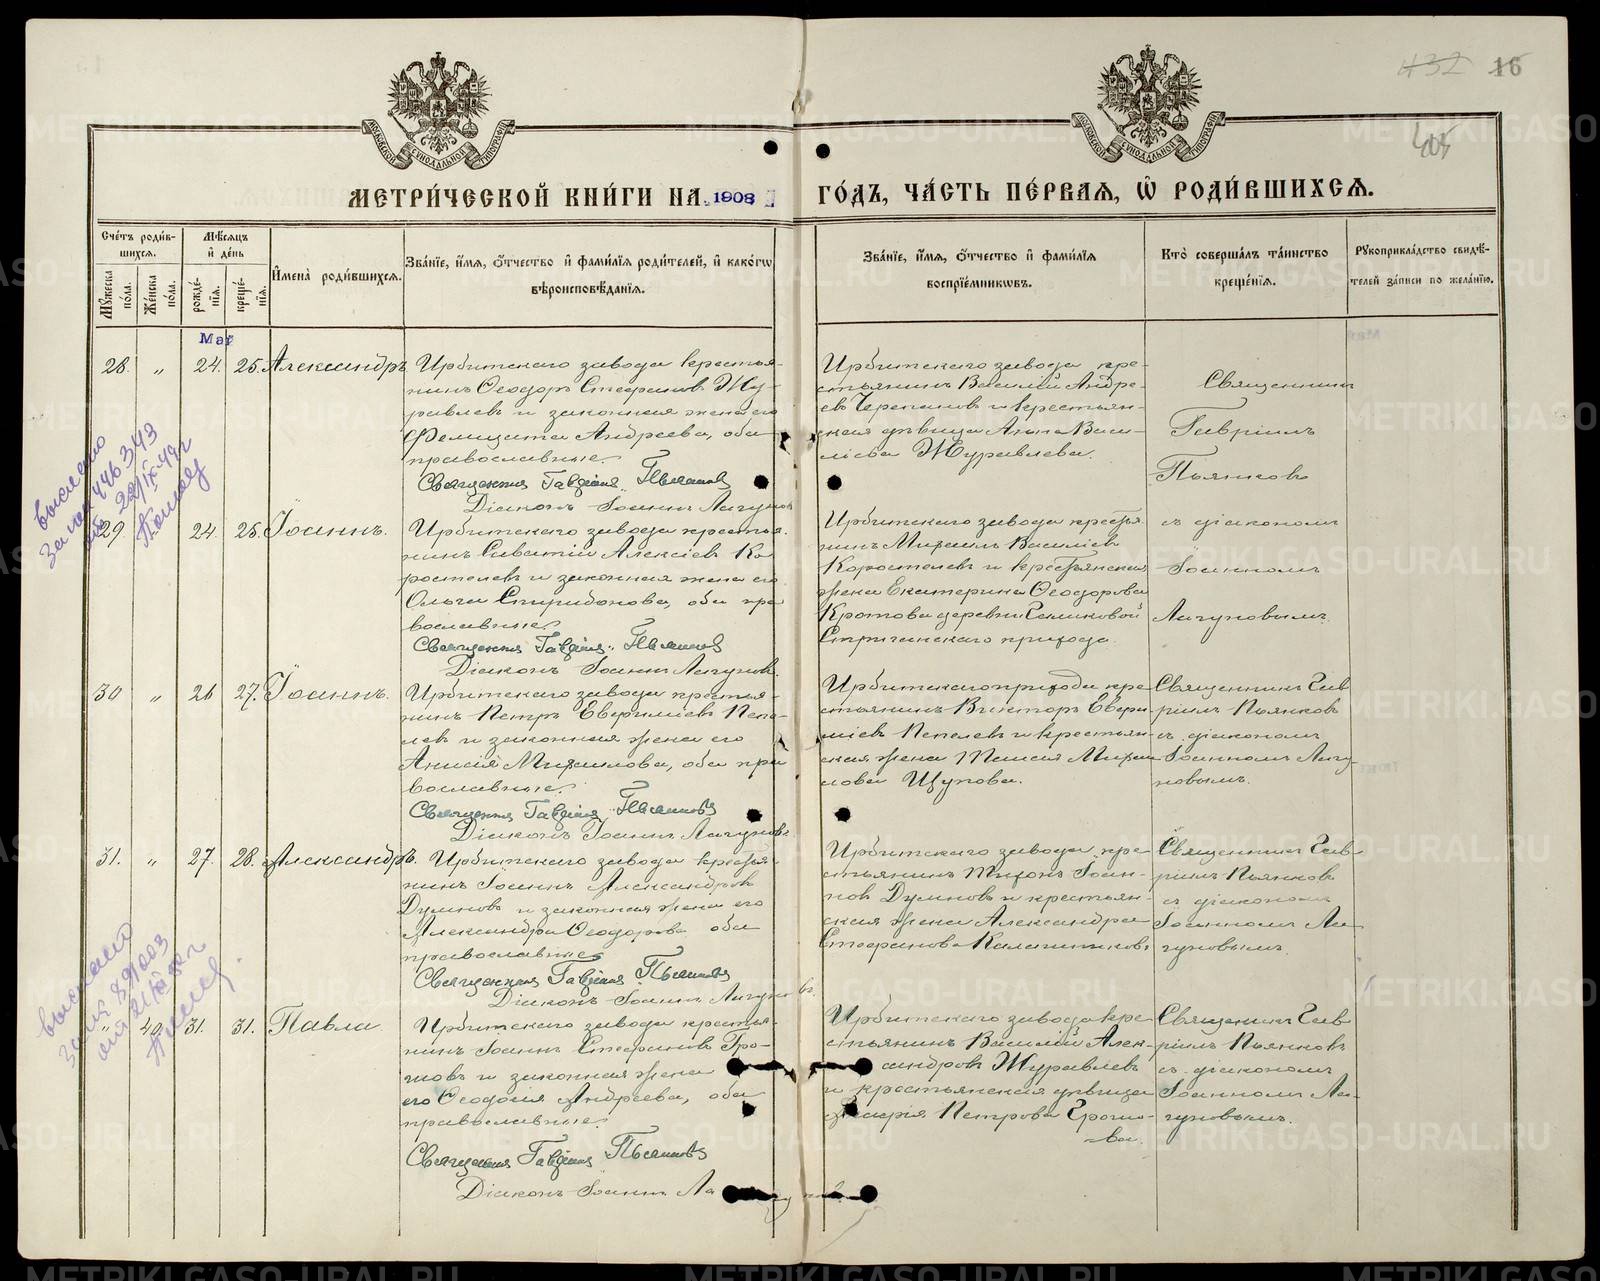 432 16
405
МОСКОВСКОЙ СѴНОДАЛЬНОЙ ТИПОГРАФІИ
МОСКОВСКОЙ СѴНОДАЛЬНОЙ ТИПОГРАФІИ
МЕТРИ́ЧЕСКОЙ КНИ́ГИ НА 1908 ГО́ДЪ, ЧА́СТЬ ПЕ́РВАЯ, Ѡ РОДИ́ВШИХСЯ.
Сче́тъ роди́вшихся.
Мꙋ́жеска по́ла.
Же́нска по́ла.
Мѣ́сяцъ и҆ де́нь
рожде́нїя.
креще́нїя.
И҆мена̀ роди́вшихся.
Зва́нїе, и҆́мя, ѻ҆́тчество и҆ фами́лїя роди́телей, и҆ како́гѡ
вѣроисповѣ́данїя.
Зва́нїе, и҆́мя, ѻ҆́тчество и҆ фами́лїя
воспрїе́мникѡвъ.
Кто̀ соверша́лъ та́инство
креще́нїя.
Рꙋкоприкла́дство свидѣ́-
телей за́писи по жела́нїю.
Май
28. „ 24. 25. Александръ
Ирбитскаго завода крестья-
нинъ Ѳеодоръ Стефановъ Жу-
равлевъ и законная жена его
Фелицата Андреева, оба
православные.
Священникъ Гавріилъ Пьянковъ
Діаконъ Іоаннъ Лагуновъ
Ирбитскаго завода кре-
стьянинъ Василій Андре-
евъ Черепановъ и крестьян-
ская дѣвица Анна Васи-
ліева Журавлева.
Священникъ
Гавріилъ
Пьянковъ
съ діакономъ
Іоанномъ
Лагуновымъ.
выслано
29. 24. 25. Іоаннъ.
Ирбитскаго завода крестья-
нинъ Савватій Алексіевъ Ко-
ростелевъ и законная жена его
Ольга Спиридонова, оба пра
вославные.
Священникъ Гавріилъ Пьянковъ
Діаконъ Іоаннъ Лагуновъ.
Ирбитскаго завода крестья-
нинъ Михаилъ Василіевъ
Коростелевъ и крестьянская
жена Екатерина Ѳеодорова
Кротова деревни Галишовой
Стриганскаго прихода.
30 „ 26 27. Іоаннъ.
Ирбитскаго завода крестья-
нинъ Петръ Евфиміевъ Пепе-
левъ и законная жена его
Анисія Михаилова, оба пра
вославные.
Священникъ Гавріилъ Пьянковъ
Діаконъ Іоаннъ Лагуновъ
Ирбитскаго прихода кре-
стьянинъ Викторъ Евфи-
міевъ Пепелевъ и крестьян-
ская жена Таисія Михаи-
лова Щупова.
Священникъ Гав
ріилъ Пьянковъ
съ діакономъ
Іоанномъ Лагу-
новымъ.
31. „ 27. 28. Александръ.
Ирбитскаго завода крестья-
нинъ Іоаннъ Александровъ
Думновъ и законная жена его
Александра Ѳеодорова оба
православные
Священникъ Гавріилъ Пьянковъ
Діаконъ Іоаннъ Лагуновъ.
Ирбитскаго завода кре-
стьянинъ Тихонъ Іоан-
новъ Думновъ и крестьян-
ская жена Александра
Стефанова Калашникова
Священникъ Гав-
ріилъ Пьянковъ
съ діакономъ
Іоанномъ Ла-
гуновымъ.
выслано
„ 40. 31. 31. Павла
Ирбитскаго завода крестья-
нинъ Іоаннъ Стефановъ Гро-
мовъ и законная жена
его Ѳеодосія Андреева, оба
православные.
Священникъ Гавріилъ Пьянковъ
Діаконъ Іоаннъ Ла
Ирбитскаго завода кре-
стьянинъ Василій Алек-
сандровъ Журавлевъ
и крестьянская дѣвица
Марія Петрова Громо-
ва.
Священникъ Гав-
ріилъ Пьянковъ
съ діакономъ
Іоанномъ Ла-
гуновымъ.
METRIKI.GASO-URAL.RU